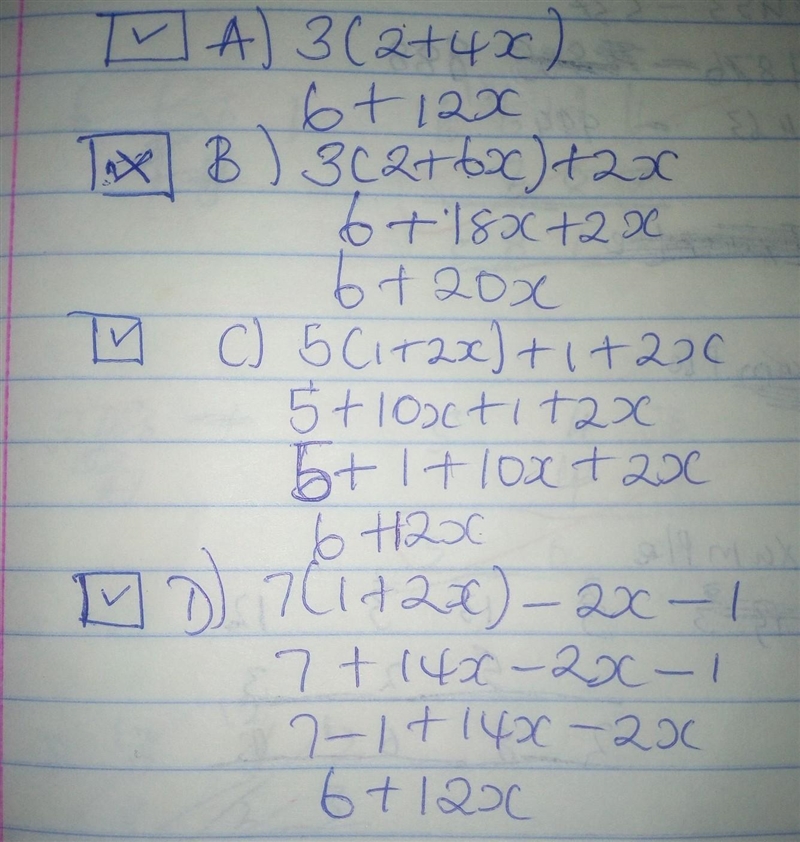 ✓ A) 3(2+4x)
6+12x
x B) 3(2+6x)+2x
6+18x+2x
6+20x
✓ C) 5(1+2x)+1+2x
5+10x+1+2x
5+1+10x+2x
6+12x
✓ D) 7(1+2x)-2x-1
7+14x-2x-1
7-1+14x-2x
6+12x